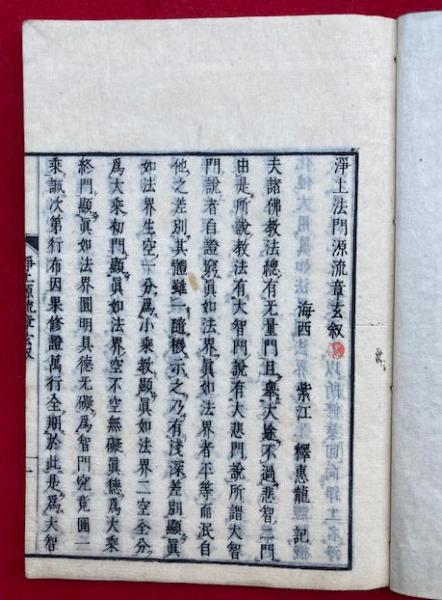 淨土法門源流章玄叙
海西 紫江 釋惠龍 記
夫諸佛教法總有无量門且擧大途不過悲智二門
由是所說教法有大智門說有大悲門說所謂大智
門說者自證窮眞如法界者平等而泯自
他之差別其體雖一隨機示之乃有淺深差別顯眞
如法界生空一分爲小乘教顯眞如法界二空全分
爲大乘初門顯眞如法界空不空無礙眞德爲大乘
終門顯眞如法界圓明具德无礙爲智門究竟圓二
乘誠次第行布因果修證萬行全期於此是爲大智
淨土源流章玄叙
一